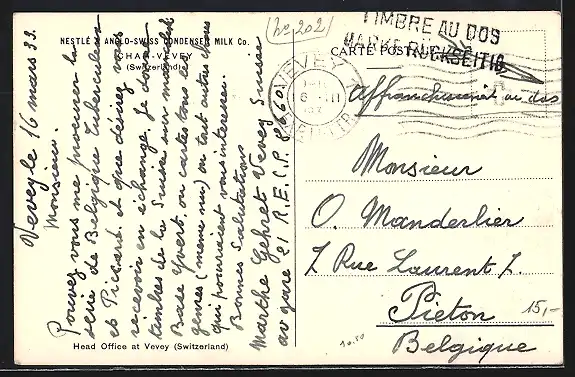 NESTLÉ & ANGLO-SWISS CONDENSED MILK Co.
CHAM-VEVEY
(Switzerland)
Vevey le 16 mars 33.
Monsieur.
Pouvez vous me procurer la
série de Belgique tuberculeux
et Piccard et que désirez vous
recevoir en échange. Je donne
timbres de la Suisse sur mancoliste
Base Yvert, ou cartes tous les
genres (même nu) ou tout autre chose
qui pourraient vous intéresser.
Bonnes Salutations
Marthe Gehret Vevey Suisse
av gare 21 R.E.C.P.
Head Office at Vevey (Switzerland)
(No 202)
TIMBRE AU DOS
MARKE RÜCKSEITIG
CARTE POSTALE
VEVEY
Affranchissement au dos
Monsieur
O. Manderlier
7 Rue Laurent 7.
Piéton
Belgique
15,-